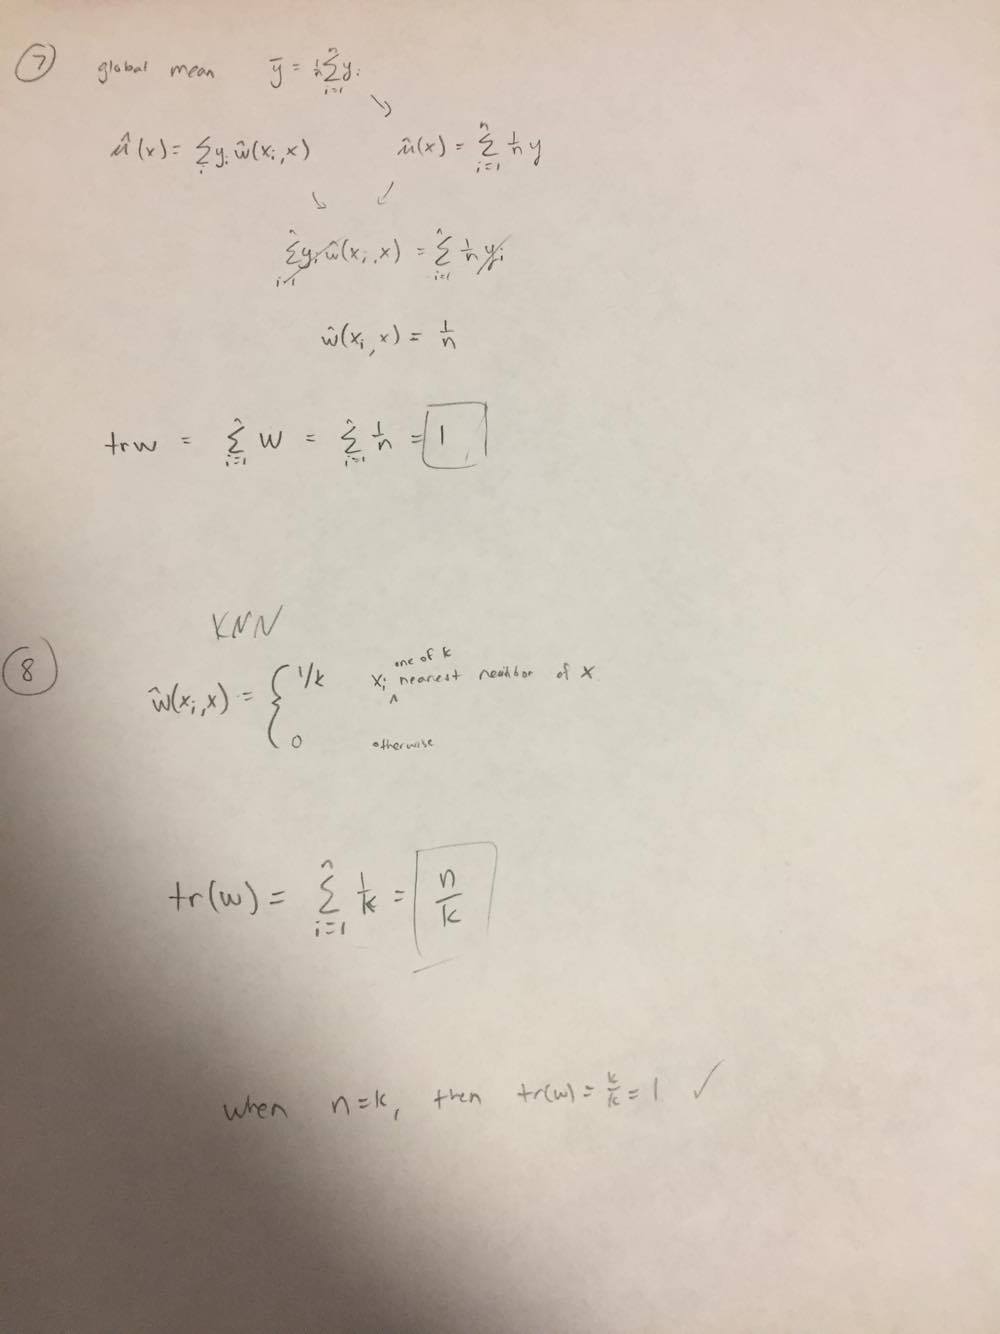 7 global mean ȳ = 1/n Σ_{i=1}^{n} y_i
û(x) = Σ_i y_i ŵ(x_i, x)   û(x) = Σ_{i=1}^{n} 1/n y
Σ_{i=1}^{n} y_i ŵ(x_i, x) = Σ_{i=1}^{n} 1/n y_i
ŵ(x_i, x) = 1/n
tr w = Σ_{i=1}^{n} w = Σ_{i=1}^{n} 1/n = 1
KNN
8 ŵ(x_i, x) = { 1/k   x_i one of k nearest neighbor of x
0   otherwise
tr(w) = Σ_{i=1}^{n} 1/k = n/k
when n=k, then tr(w) = k/k = 1 ✓